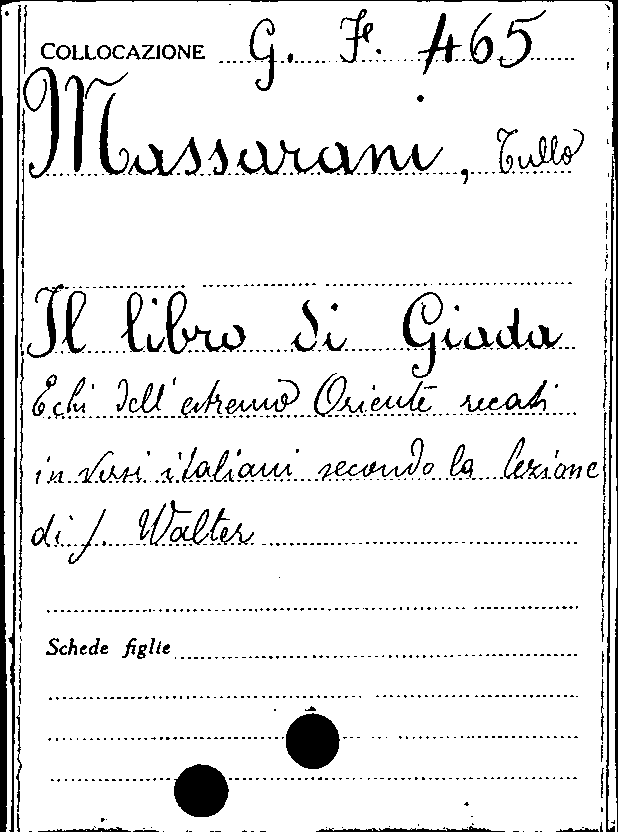 COLLOCAZIONE G. F. 465
Massarani, Tullo
Il libro di Giada
Echi dell'estremo Oriente recati
in versi italiani secondo la lezione
di J. Walter
Schede figlie